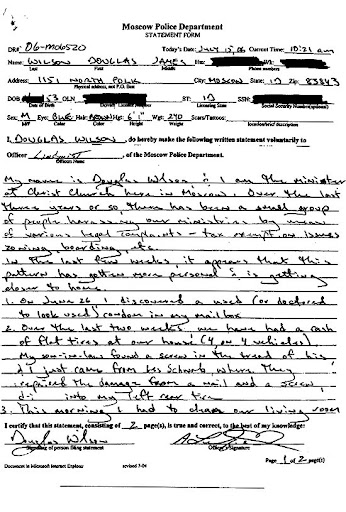 Moscow Police Department
STATEMENT FORM
DR# 06-M06520 Today's Date: July 15, 06 Current Time: 10:21 am
Name: WILSON DOUGLAS JAMES Hm: Wk:
Last First Middle Phone numbers
Address: 1151 NORTH POLK City: MOSCOW State: ID Zip: 83843
Physical address, not P.O. Box
DOB 53 OLN ST: ID SSN
Date of Birth Driver's License Number Licensing State Social Security Number (optional)
Sex: M Eye: BLUE Hair: BROWN Hgt: 6'1" Wgt: 240 Scars/Tattoos:
M/F Color Color Height Weight location/brief description
I, DOUGLAS WILSON, do hereby make the following written statement voluntarily to
Officer, of the Moscow Police Department.
Officers Name
My name is Douglas Wilson & I am the minister
at Christ Church here in Moscow. Over the last
three years or so there has been a small group
of people harassing our ministries by means
of various legal complaints - tax exemption issues
zoning, boarding, etc.
In the last few weeks, it appears that this
pattern has gotten more personal & is getting
closer to home.
1. On June 26, I discovered a used (or doctored
to look used) condom in my mailbox
2. Over the last two weeks we have had a rash
of flat tires at our house (4 on 4 vehicles).
My son-in-law found a screw in the tread of his,
& I just came from Les Schwab, where they
repaired the damage from a nail and a screw
into my left rear tire
3. This morning I had to chase our living room
I certify that this statement, consisting of 2 page(s), is true and correct, to the best of my knowledge:
Douglas Wilson
Signature of person filing statement Officer's Signature
Page 1 of 2 page(s)
Document in Microsoft Internet Explorer revised 7-04